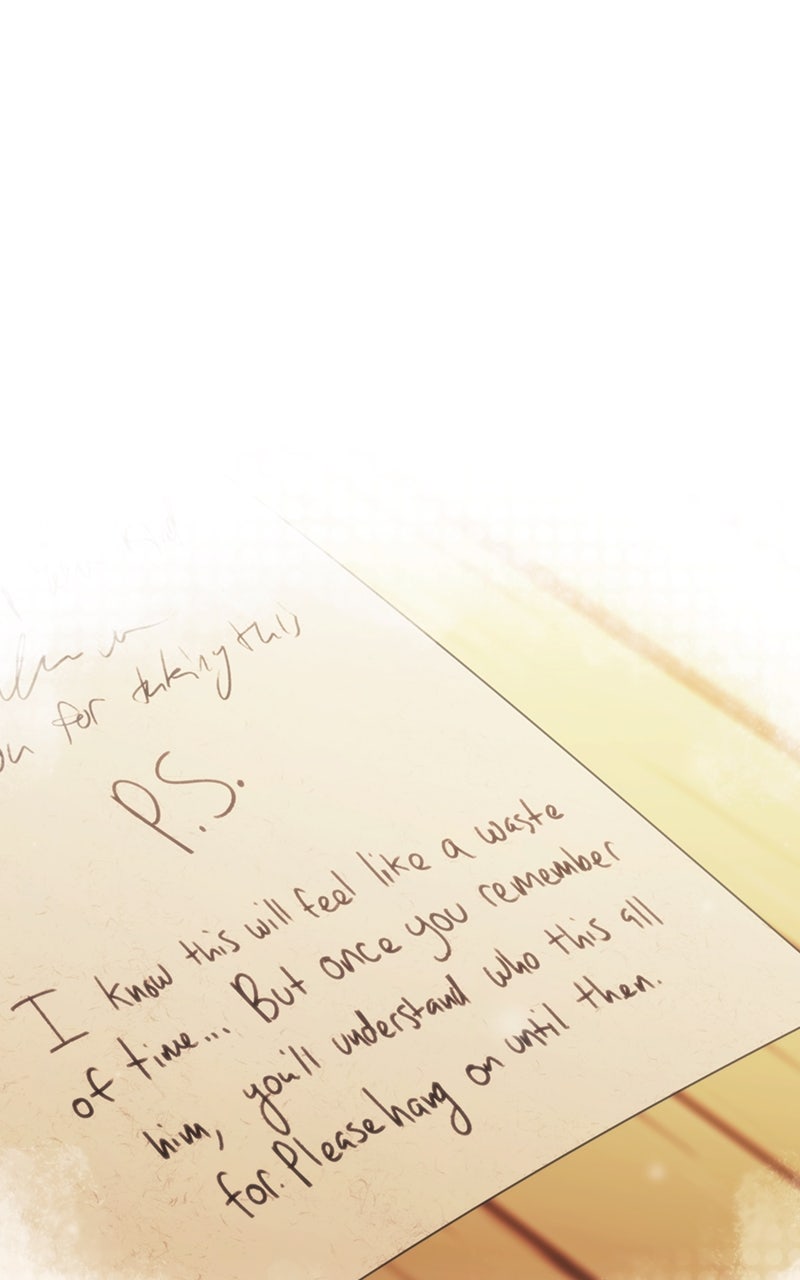 for taking this
P.S.
I know this will feel like a waste
of time... But once you remember
him, you'll understand who this all
for. Please hang on until then.